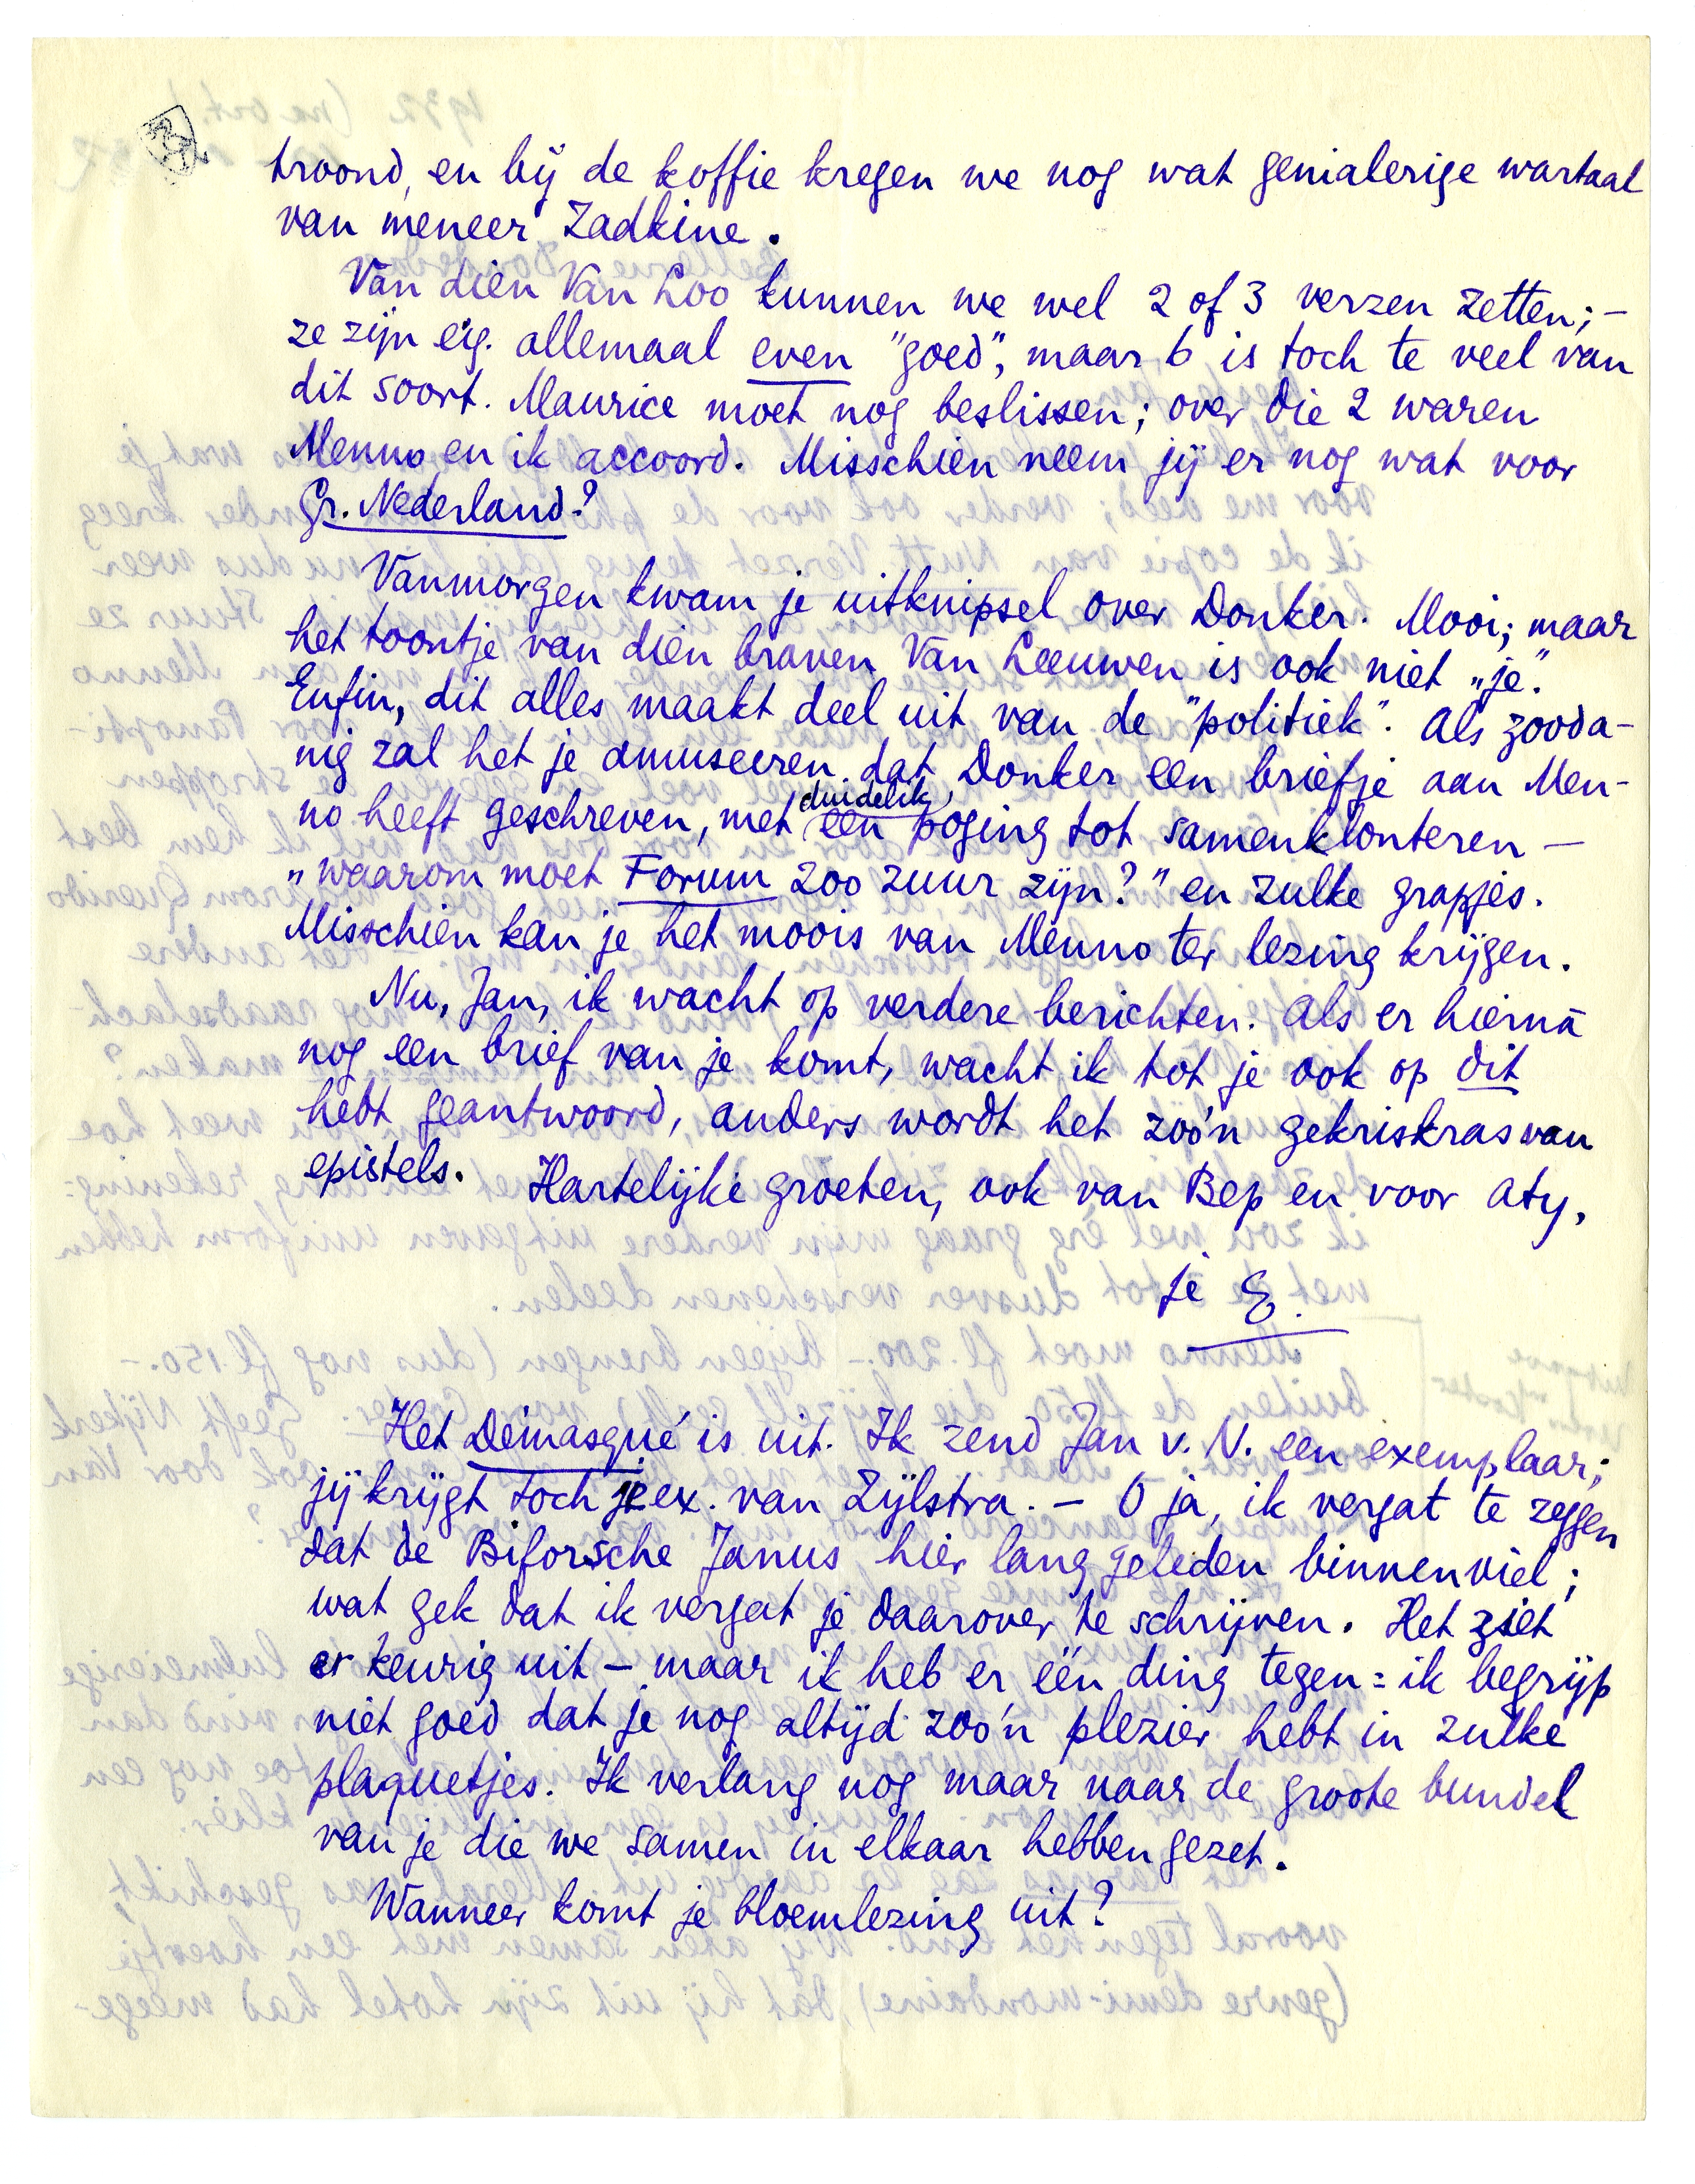 troond, en bij de koffie kregen we nog wat genialerige wartaal
van meneer Zadkine.
Van dien Van Loo kunnen we wel 2 of 3 verzen zetten; –
ze zijn eig. allemaal even "goed", maar 6 is toch te veel van
dit soort. Maurice moet nog beslissen; over die 2 waren
Menno en ik accoord. Misschien neem jij er nog wat voor
Gr. Nederland?
Vanmorgen kwam je uitknipsel over Donker. Mooi; maar
het toontje van dien braven Van Leeuwen is ook niet „je".
Enfin, dit alles maakt deel uit van de "politiek". Als zooda-
nig zal het je amuseeren dat Donker een briefje aan Men-
no heeft geschreven, met duidelijk een poging tot samenklonteren –
„waarom moet Forum zoo zuur zijn?" en zulke grapjes.
Misschien kan je het moois van Menno ter lezing krijgen.
Nu, Jan, ik wacht op verdere berichten. Als er hierna
nog een brief van je komt, wacht ik tot je ook op dit
hebt geantwoord, anders wordt het zoo'n gekriskras van
epistels. Hartelijke groeten, ook van Bep en voor Aty,
je E.
Het Démasqué is uit. Ik zend Jan v. N. een exemplaar;
jij krijgt toch je ex. van Zijlstra. – O ja, ik vergat te zeggen
dat de Biforsche Janus hier lang geleden binnenviel;
wat gek dat ik vergat je daarover te schrijven. Het ziet
er keurig uit – maar ik heb er één ding tegen: ik begrijp
niet goed dat je nog altijd zoo'n plezier hebt in zulke
plaquetjes. Ik verlang nog maar naar de groote bundel
van je die we samen in elkaar hebben gezet.
Wanneer komt je bloemlezing uit?